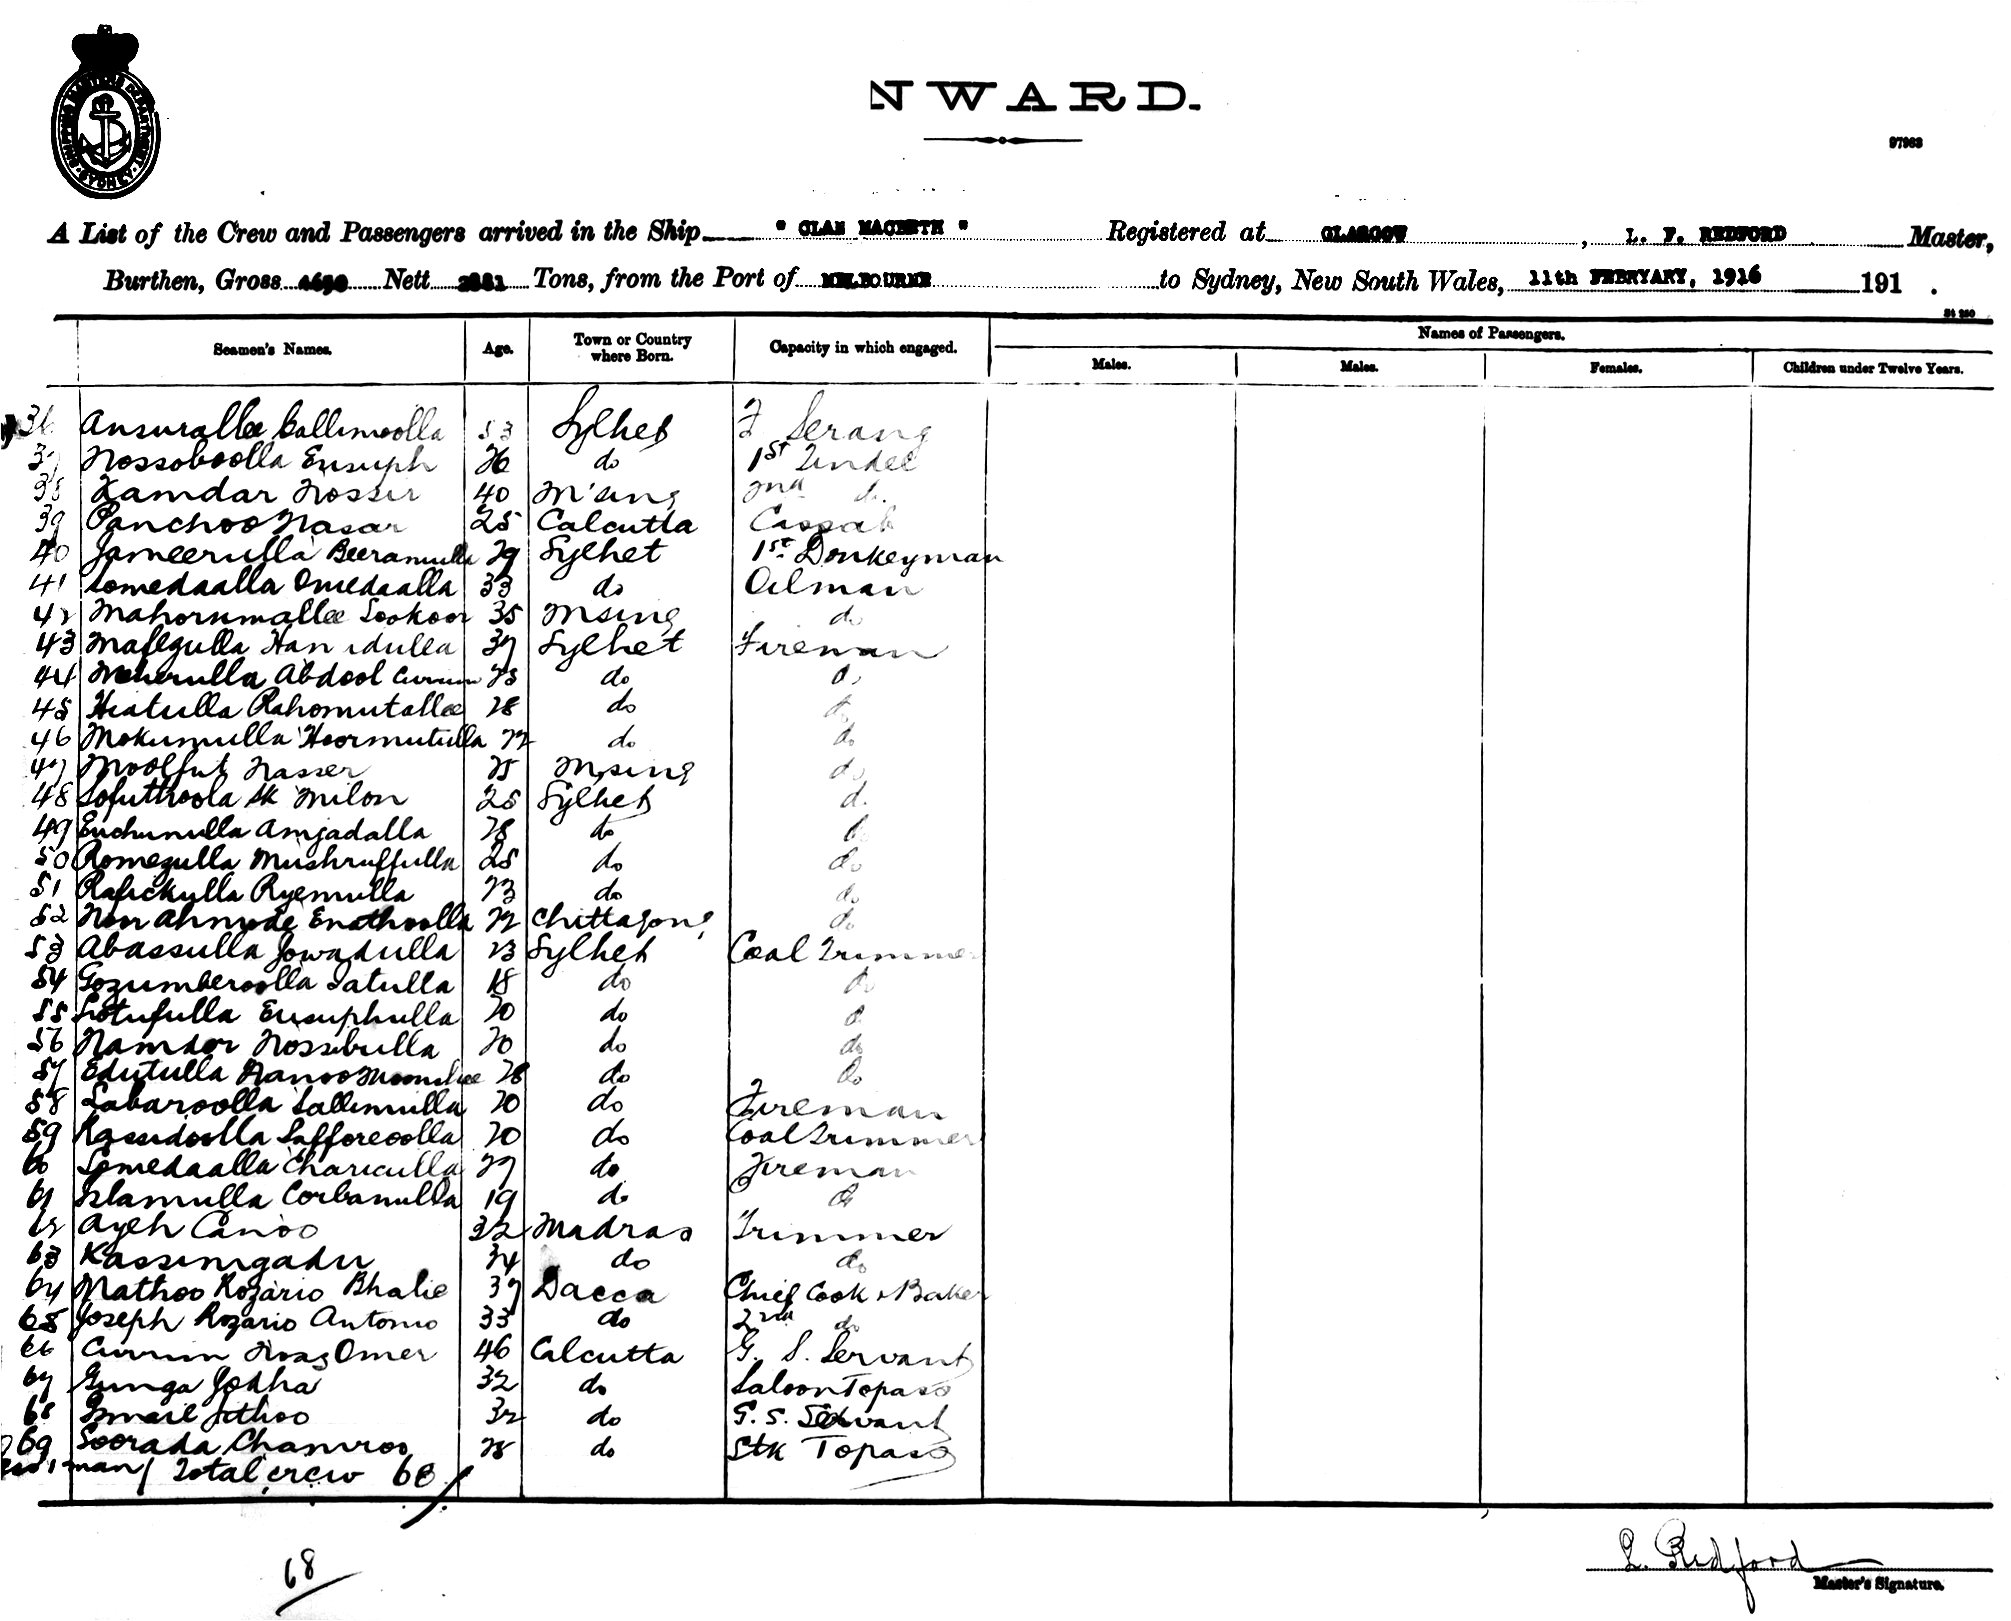 SHIPPING MASTERS DEPARTMENT SYDNEY
NWARD.
97963
A List of the Crew and Passengers arrived in the Ship " CLAN MACBETH " Registered at GLASGOW, L. F. REDFORD Master,
Burthen, Gross 4650 Nett Tons, from the Port of MELBOURNE to Sydney, New South Wales, 11th FEBRYARY, 1916 191 .
Seamen's Names. Age. Town or Country where Born. Capacity in which engaged. Names of Passengers.
Males. Males. Females. Children under Twelve Years.
36 Ansurallee Sallimoolla 53 Sylhet F Serang
37 Nossoboolla Eusuph 26 do 1st Tindel
38 Kamdar Nossir 40 M'sing 2nd do
39 Panchoo Nasar 25 Calcutta Cassab
40 Jameerulla Beeramulla 29 Sylhet 1st Donkeyman
41 Somedaalla Omedaalla 33 do Oilman
42 Mahorumallee Sookoor 35 Msing do
43 Mafizulla Hanidulla 37 Sylhet Fireman
44 Abdool Currim 25 do do
45 Hiatulla Rahomutallee 28 do do
46 Mokumulla Hoormutulla 22 do do
47 Moolfut Nasser 25 Msing do
48 Sofuthoola Sk Milon 25 Sylhet do
49 Euchunulla Amjadalla 28 do do
50 Romezulla Mushruffulla 25 do do
51 Rafickulla Ryemulla 23 do do
52 Noor Ahmode Enathoolla 22 Chittagong do
53 Abassulla Jowadulla 23 Sylhet Coal Trimmer
54 Gozumberoolla Satulla 18 do do
55 Lotufulla Eusuphulla 20 do do
56 Namdor Nossibulla 20 do do
57 Edutulla Manoo Moonshee 28 do do
58 Sabaroolla Sallimulla 20 do Fireman
59 Rassidoolla Safforeoolla 20 do Coal Trimmer
60 Somedaalla Chariculla 27 do Fireman
61 Islamulla Corbanulla 19 do do
62 Ayeh Canoo 32 Madras Trimmer
63 Kassimgadu 24 do do
64 Mathoo Rozario Bhalie 37 Dacca Chief Cook & Baker
65 Joseph Rozario Antonio 33 do 2nd do
66 Currim Omer 46 Calcutta G. S. Servant
67 Gunga Jokha 32 do Saloon Topass
68 Ismail Jithoo 32 do G. S. Servant
69 Soorada Chamroo 25 do Stk Topass
Total crew 68
68
L. Redford
Master's Signature.